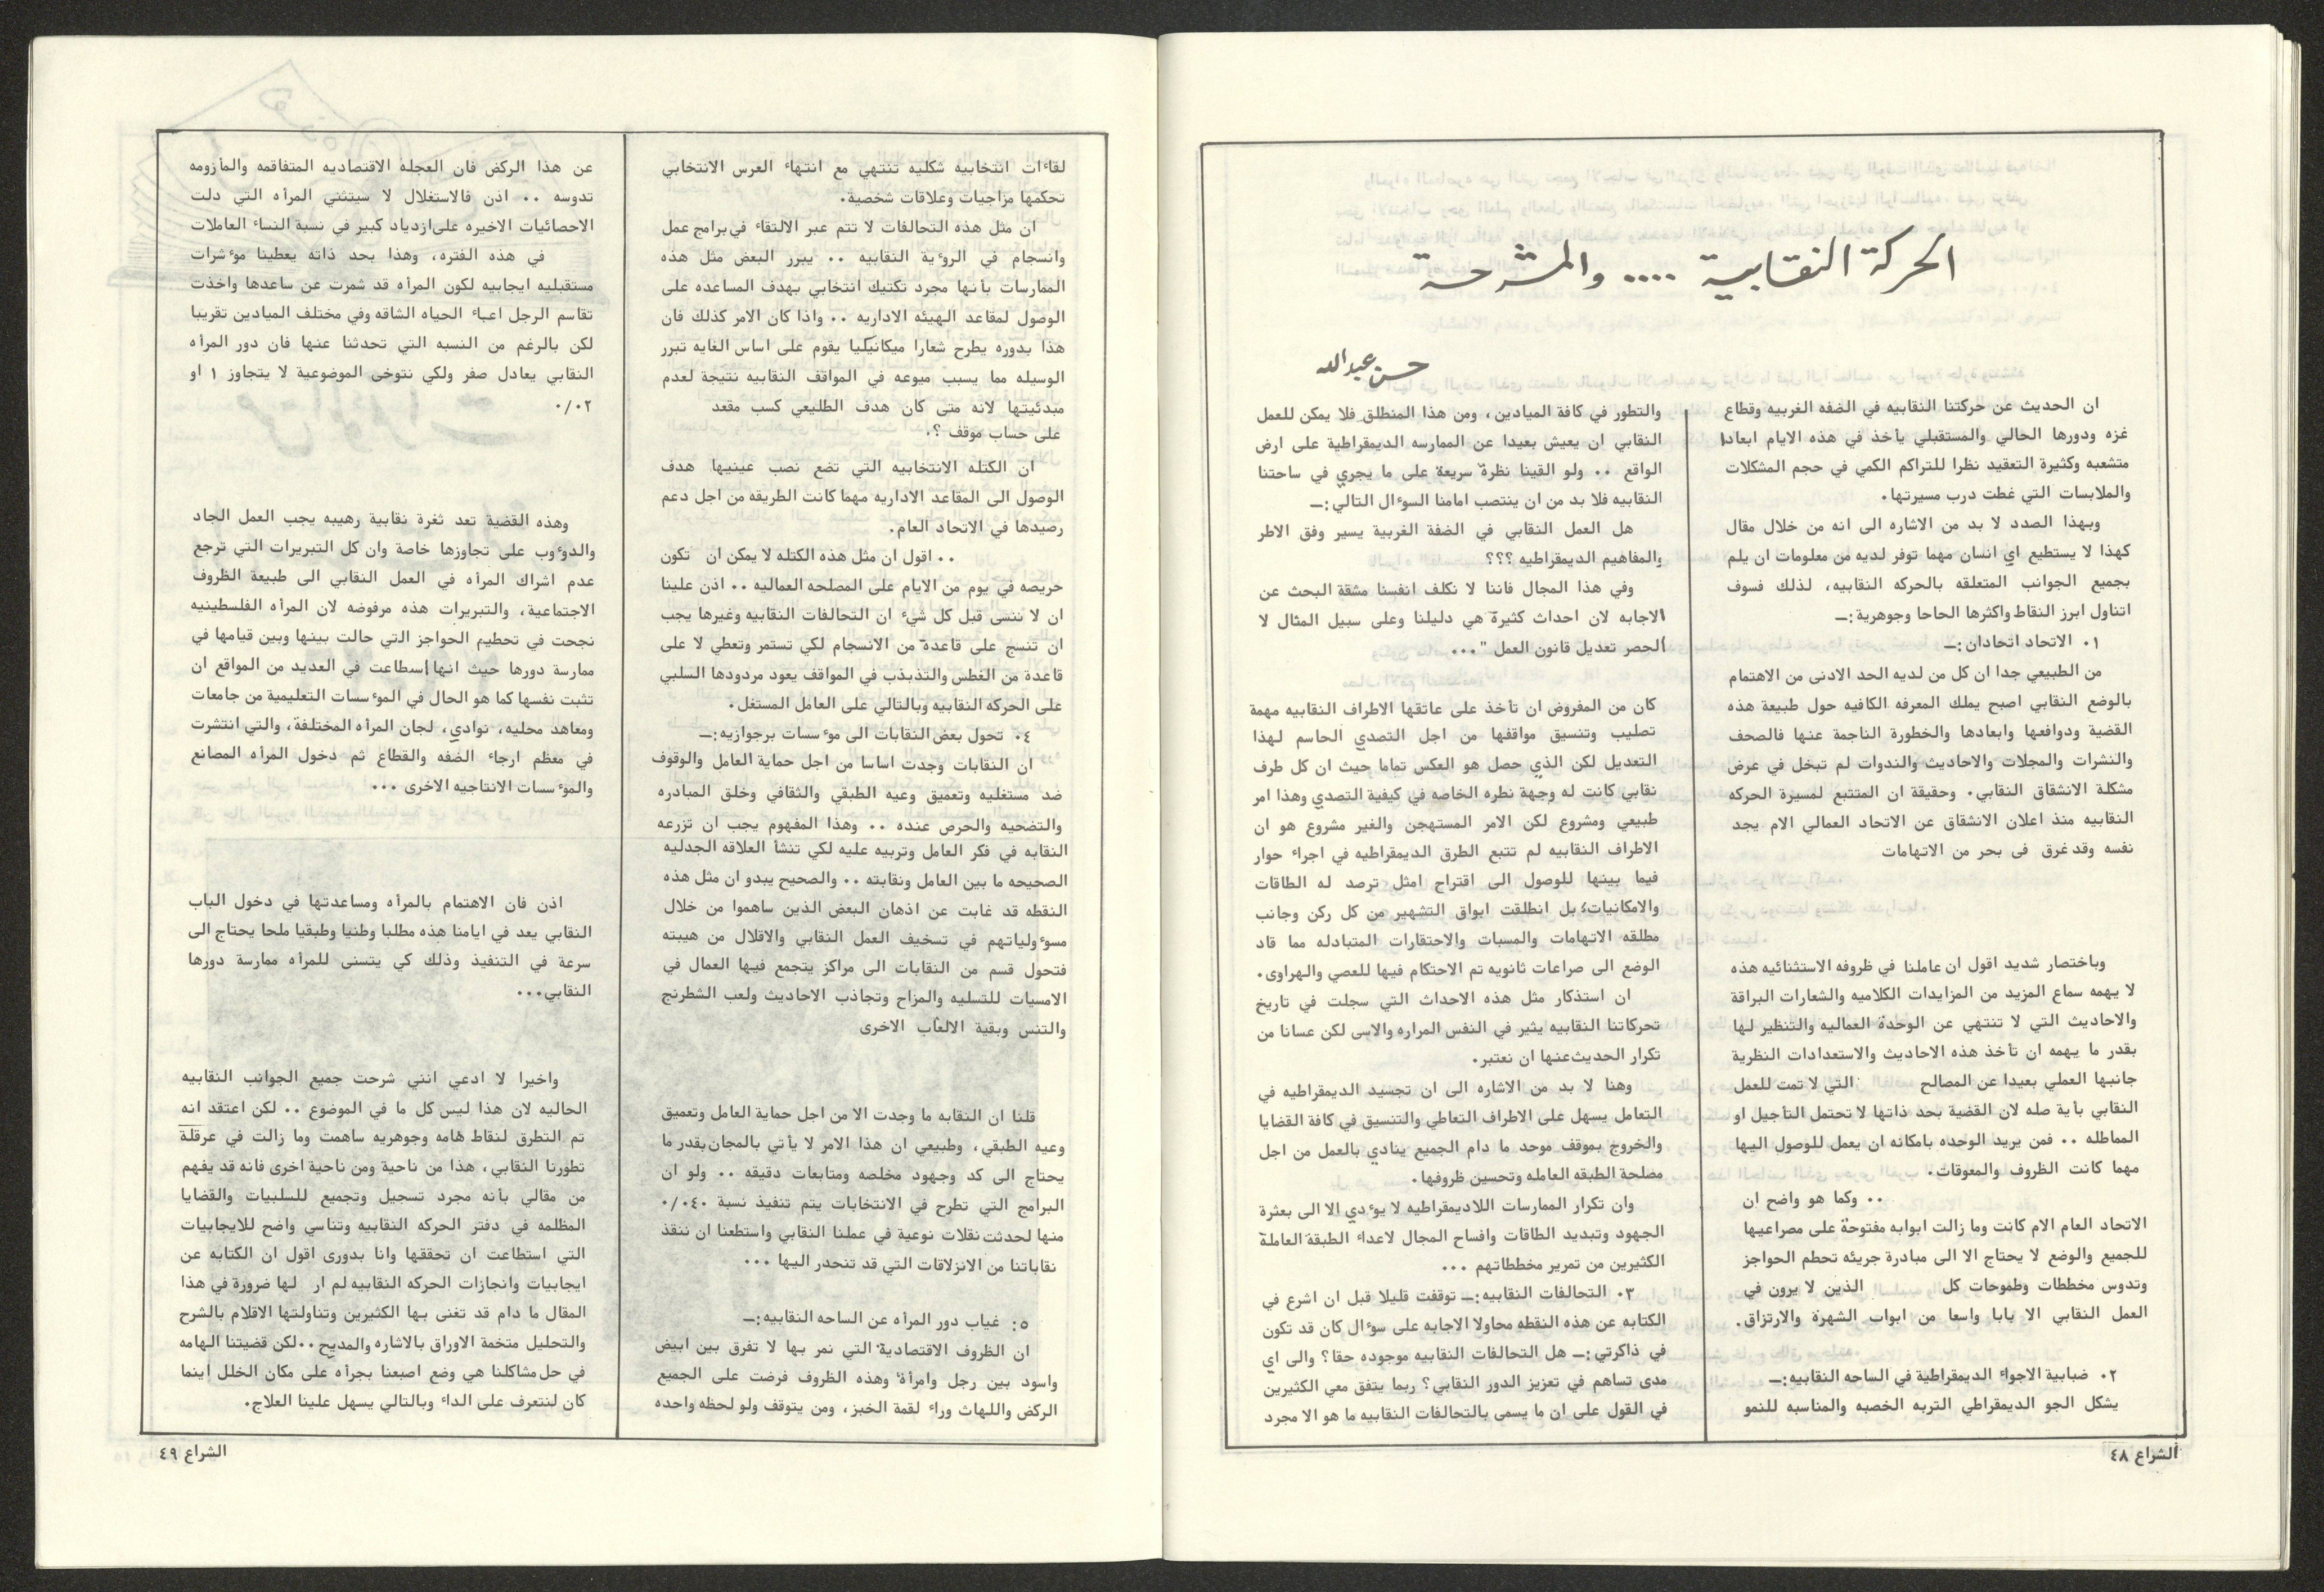 الحركة النقابية .... والمشرحة
حسن عبدالله
ان الحديث عن حركتنا النقابيه في الضفه الغربيه وقطاع
غزه ودورها الحالي والمستقبلي يأخذ في هذه الايام ابعادا
متشعبه وكثيرة التعقيد نظرا للتراكم الكمي في حجم المشكلات
والملابسات التي غطت درب مسيرتها.
وبهذا الصدد لا بد من الاشاره الى انه من خلال مقال
كهذا لا يستطيع اي انسان مهما توفر لديه من معلومات ان يلم
بجميع الجوانب المتعلقه بالحركه النقابيه، لذلك فسوف
اتناول ابرز النقاط واكثرها الحاحا وجوهرية :ــ
١. الاتحاد اتحادان :ــ
من الطبيعي جدا ان كل من لديه الحد الادنى من الاهتمام
بالوضع النقابي اصبح يملك المعرفه الكافيه حول طبيعة هذه
القضية ودوافعها وابعادها والخطورة الناجمة عنها فالصحف
والنشرات والمجلات والاحاديث والندوات لم تبخل في عرض
مشكلة الانشقاق النقابي. وحقيقة ان المتتبع لمسيرة الحركه
النقابيه منذ اعلان الانشقاق عن الاتحاد العمالي الام يجد
نفسه وقد غرق فى بحر من الاتهامات
وباختصار شديد اقول ان عاملنا في ظروفه الاستثنائيه هذه
لا يهمه سماع المزيد من المزايدات الكلاميه والشعارات البراقة
والاحاديث التي لا تنتهي عن الوحدة العماليه والتنظير لها
بقدر ما يهمه ان تأخذ هذه الاحاديث والاستعدادات النظرية
جانبها العملي بعيدا عن المصالح التي لا تمت للعمل
النقابي بأية صله لان القضية بحد ذاتها لا تحتمل التأجيل او
المماطله .. فمن يريد الوحده بامكانه ان يعمل للوصول اليها
مهما كانت الظروف والمعوقات.
.. وكما هو واضح ان
الاتحاد العام الام كانت وما زالت ابوابه مفتوحة على مصراعيها
للجميع والوضع لا يحتاج الا الى مبادرة جريئه تحطم الحواجز
وتدوس مخططات وطموحات كل الذين لا يرون في
العمل النقابي الا بابا واسعا من ابوات الشهرة والارتزاق.
٢. ضبابية الاجواء الديمقراطية في الساحه النقابيه :ــ
يشكل الجو الديمقراطي التربه الخصبه والمناسبه للنمو
والتطور في كافة الميادين، ومن هذا المنطلق فلا يمكن للعمل
النقابي ان يعيش بعيدا عن الممارسه الديمقراطية على ارض
الواقع .. ولو القينا نظرة سريعة على ما يجري في ساحتنا
النقابيه فلا بد من ان ينتصب امامنا السوءال التالي :ــ
هل العمل النقابي في الضفة الغربية يسير وفق الاطر
والمفاهيم الديمقراطيه ؟؟؟
وفي هذا المجال فاننا لا نكلف انفسنا مشقة البحث عن
الاجابه لان احداث كثيرة هي دليلنا وعلى سبيل المثال لا
الحصر تعديل قانون العمل " ...
كان من المفروض ان تأخذ على عاتقها الاطراف النقابيه مهمة
تصليب وتنسيق مواقفها من اجل التصدي الحاسم لهذا
التعديل لكن الذي حصل هو العكس تماما حيث ان كل طرف
نقابي كانت له وجهة نظره الخاصه في كيفية التصدي وهذا امر
طبيعي ومشروع لكن الامر المستهجن والغير مشروع هو ان
الاطراف النقابيه لم تتبع الطرق الديمقراطيه في اجراء حوار
فيما بينها للوصول الى اقتراح امثل ترصد له الطاقات
والامكانيات؛ بل انطلقت ابواق التشهير من كل ركن وجانب
مطلقه الاتهامات والمسبات والاحتقارات المتبادله مما قاد
الوضع الى صراعات ثانويه تم الاحتكام فيها للعصي والهراوى.
ان استذكار مثل هذه الاحداث التي سجلت في تاريخ
تحركاتنا النقابيه يثير في النفس المراره والاسى لكن عسانا من
تكرار الحديث عنها ان نعتبر.
وهنا لا بد من الاشاره الى ان تجسيد الديمقراطيه في
التعامل يسهل على الاطراف التعاطي والتنسيق في كافة القضايا
والخروج بموقف موحد ما دام الجميع ينادي بالعمل من اجل
مصلحة الطبقه العامله وتحسين ظروفها.
وان تكرار الممارسات اللاديمقراطيه لا يوءدي الا الى بعثرة
الجهود وتبديد الطاقات وافساح المجال لاعداء الطبقة العاملة
الكثيرين من تمرير مخططاتهم ...
٣. التحالفات النقابيه :ــ توقفت قليلا قبل ان اشرع في
الكتابه عن هذه النقطه محاولا الاجابه على سوءال كان قد تكون
في ذاكرتي :ــ هل التحالفات النقابيه موجوده حقا؟ والى اي
مدى تساهم في تعزيز الدور النقابي؟ ربما يتفق معي الكثيرين
في القول على ان ما يسمى بالتحالفات النقابيه ما هو الا مجرد
الشراع ٤٨
لقاءات انتخابيه شكليه تنتهي مع انتهاء العرس الانتخابي
تحكمها مزاجيات وعلاقات شخصية.
ان مثل هذه التحالفات لا تتم عبر الالتقاء في برامج عمل
وانسجام في الروءية النقابيه .. يبرر البعض مثل هذه
الممارسات بأنها مجرد تكتيك انتخابي بهدف المساعده على
الوصول لمقاعد الهيئه الاداريه .. واذا كان الامر كذلك فان
هذا بدوره يطرح شعارا ميكانيكيا يقوم على اساس الغايه تبرر
الوسيله مما يسبب ميوعه في المواقف النقابيه نتيجة لعدم
مبدئيتها لانه متى كان هدف الطليعي كسب مقعد
على حساب موقف ؟.
ان الكتله الانتخابيه التي تضع نصب عينيها هدف
الوصول الى المقاعد الاداريه مهما كانت الطريقه من اجل دعم
رصيدها في الاتحاد العام.
.. اقول ان مثل هذه الكتله لا يمكن ان تكون
حريصه في يوم من الايام على المصلحه العماليه .. اذن علينا
ان لا ننسى قبل كل شيء ان التحالفات النقابيه وغيرها يجب
ان تنسج على قاعدة من الانسجام لكي تستمر وتعطي لا على
قاعدة من الغطس والتذبذب في المواقف يعود مردودها السلبي
على الحركه النقابيه وبالتالي على العامل المستغل.
٤. تحول بعض النقابات الى موءسسات برجوازيه :ــ
ان النقابات وجدت اساسا من اجل حماية العامل والوقوف
ضد مستغليه وتعميق وعيه الطبقي والثقافي وخلق المبادره
والتضحيه والحرص عنده .. وهذا المفهوم يجب ان تزرعه
النقابه في فكر العامل وتربيه عليه لكي تنشأ العلاقه الجدليه
الصحيحه ما بين العامل ونقابته .. والصحيح يبدو ان مثل هذه
النقطه قد غابت عن اذهان البعض الذين ساهموا من خلال
مسوءولياتهم في تسخيف العمل النقابي والاقلال من هيبته
فتحول قسم من النقابات الى مراكز يتجمع فيها العمال في
الامسيات للتسليه والمزاح وتجاذب الاحاديث ولعب الشطرنج
والتنس وبقية الالعاب الاخرى
قلنا ان النقابه ما وجدت الا من اجل حماية العامل وتعميق
وعيه الطبقي، وطبيعي ان هذا الامر لا يأتي بالمجان بقدر ما
يحتاج الى كد وجهود مخلصه ومتابعات دقيقه .. ولو ان
البرامج التي تطرح في الانتخابات يتم تنفيذ نسبة ٠/٠٤٠
منها لحدثت نقلات نوعية في عملنا النقابي واستطعنا ان ننقذ
نقاباتنا من الانزلاقات التي قد تنحدر اليها ...
٥: غياب دور المرأه عن الساحه النقابيه :ــ
ان الظروف الاقتصادية التي نمر بها لا تفرق بين ابيض
واسود بين رجل وامرأة وهذه الظروف فرضت على الجميع
الركض واللهاث وراء لقمة الخبز، ومن يتوقف ولو لحظه واحده
عن هذا الركض فان العجله الاقتصاديه المتفاقمه والمأزومه
تدوسه .. اذن فالاستغلال لا سيتثني المرأه التي دلت
الاحصائيات الاخيره على ازدياد كبير في نسبة النساء العاملات
في هذه الفتره، وهذا بحد ذاته يعطينا موءشرات
مستقبليه ايجابيه لكون المرأه قد شمرت عن ساعدها واخذت
تقاسم الرجل اعباء الحياه الشاقه وفي مختلف الميادين تقريبا
لكن بالرغم من النسبه التي تحدثنا عنها فان دور المرأه
النقابي يعادل صفر ولكي نتوخى الموضوعية لا يتجاوز ١ او
٠/٠٢
وهذه القضية تعد ثغرة نقابية رهيبه يجب العمل الجاد
والدوءوب على تجاوزها خاصة وان كل التبريرات التي ترجع
عدم اشراك المرأه في العمل النقابي الى طبيعة الظروف
الاجتماعية، والتبريرات هذه مرفوضه لان المرأه الفلسطينيه
نجحت في تحطيم الحواجز التي حالت بينها وبين قيامها في
ممارسة دورها حيث انها إسطاعت في العديد من المواقع ان
تثبت نفسها كما هو الحال في الموءسسات التعليمية من جامعات
ومعاهد محليه، نوادي، لجان المرأه المختلفة، والتي انتشرت
في معظم ارجاء الضفه والقطاع ثم دخول المرأه المصانع
والموءسسات الانتاجيه الاخرى ...
اذن فان الاهتمام بالمرأه ومساعدتها في دخول الباب
النقابي يعد في ايامنا هذه مطلبا وطنيا وطبقيا ملحا يحتاج الى
سرعة في التنفيذ وذلك كي يتسنى للمرأه ممارسة دورها
النقابي...
واخيرا لا ادعي انني شرحت جميع الجوانب النقابيه
الحاليه لان هذا ليس كل ما في الموضوع .. لكن اعتقد انه
تم التطرق لنقاط هامه وجوهريه ساهمت وما زالت في عرقلة
تطورنا النقابي، هذا من ناحية ومن ناحية اخرى فانه قد يفهم
من مقالي بأنه مجرد تسجيل وتجميع للسلبيات والقضايا
المظلمه في دفتر الحركه النقابيه وتناسي واضح للايجابيات
التي استطاعت ان تحققها وانا بدورى اقول ان الكتابه عن
ايجابيات وانجازات الحركه النقابيه لم ار لها ضرورة في هذا
المقال ما دام قد تغنى بها الكثيرين وتناولتها الاقلام بالشرح
والتحليل متخمة الاوراق بالاشاره والمديح .. لكن قضيتنا الهامه
في حل مشاكلنا هي وضع اصبعنا بجرأه على مكان الخلل اينما
كان لنتعرف على الداء وبالتالي يسهل علينا العلاج.
الشراع ٤٩